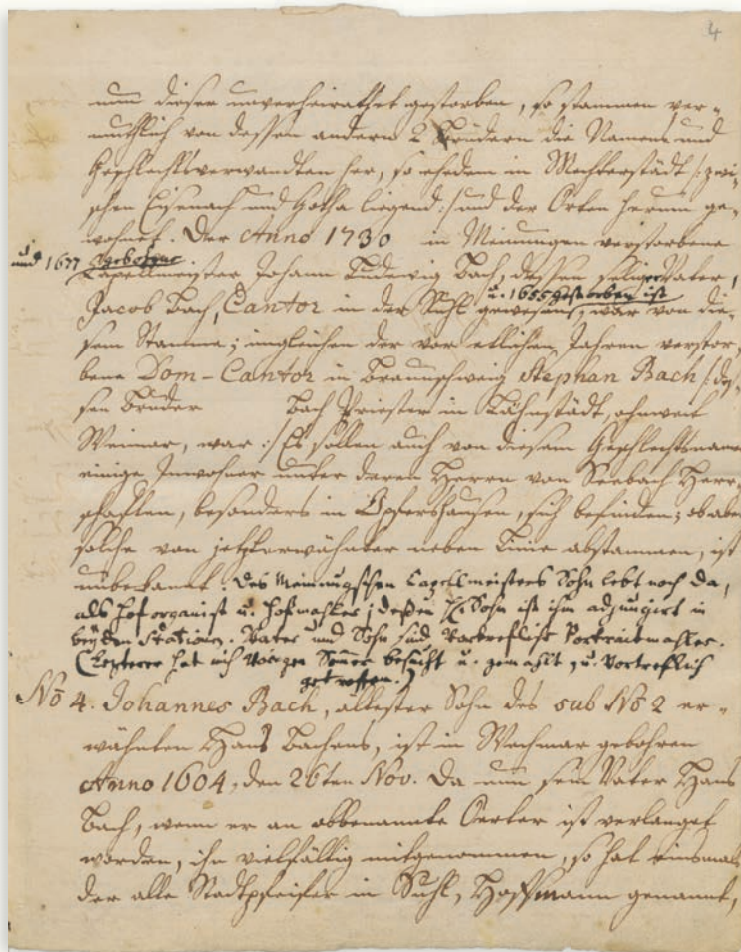 4
nun dieser unverheirathet gestorben, so stammen ver-
muthlich von dessen andern 2 Brüdern die Namens und
Geschlechtsverwandten her, so ehedem in Mechterstädt /: zwi-
schen Eisenach und Gotha liegend :/ und der Orten herum ge-
wohnet. Der Anno 1730 in Meinungen verstorbene
und 1677 gebohrne
Capellmeister Johann Ludewig Bach, dessen seeliger Vater,
u. 1655 gestorben ist
Jacob Bach, Cantor in der Ruhl gewesen, war von die-
sem Stamme; imgleichen der vor etlichen Jahren verstor-
bene Dom-Cantor in Braunschweig Stephan Bach /: des-
sen Bruder Bach Priester in Lähnstädt, ohnweit
Weimar, war :/ Es sollen auch von diesem Geschlechtsname
einige Inwohner unter denen Herrn von Seebach Herr-
schafften, besonders in Opfershausen, sich befinden; ob aber
solche von jetzterwähnter neben Linie abstammen, ist
unbekannt. Des Meinungschen Capellmeisters Sohn lebt noch da,
als Hoforganist u. Hofmahler; deßen H. Sohn ist ihm adjungirt in
beyden Stationen. Vater und Sohn sind vortrefliche Portraitmahler.
(Lezterer hat mich vorigen Sommer besucht u. gemahlt, u. vortreflich
getroffen.)
No 4. Johannes Bach, ältester Sohn des sub No 2 er-
wähnten Hans Bachens, ist in Wechmar gebohren
Anno 1604, den 26ten Nov. Da nun sein Vater Hans
Bach, wenn er an obbenannte Oerter ist verlanget
worden, ihn vielfältig mitgenommen, so hat einsmals
der alte Stadtpfeifer in Suhl, Hoffmann genannt,